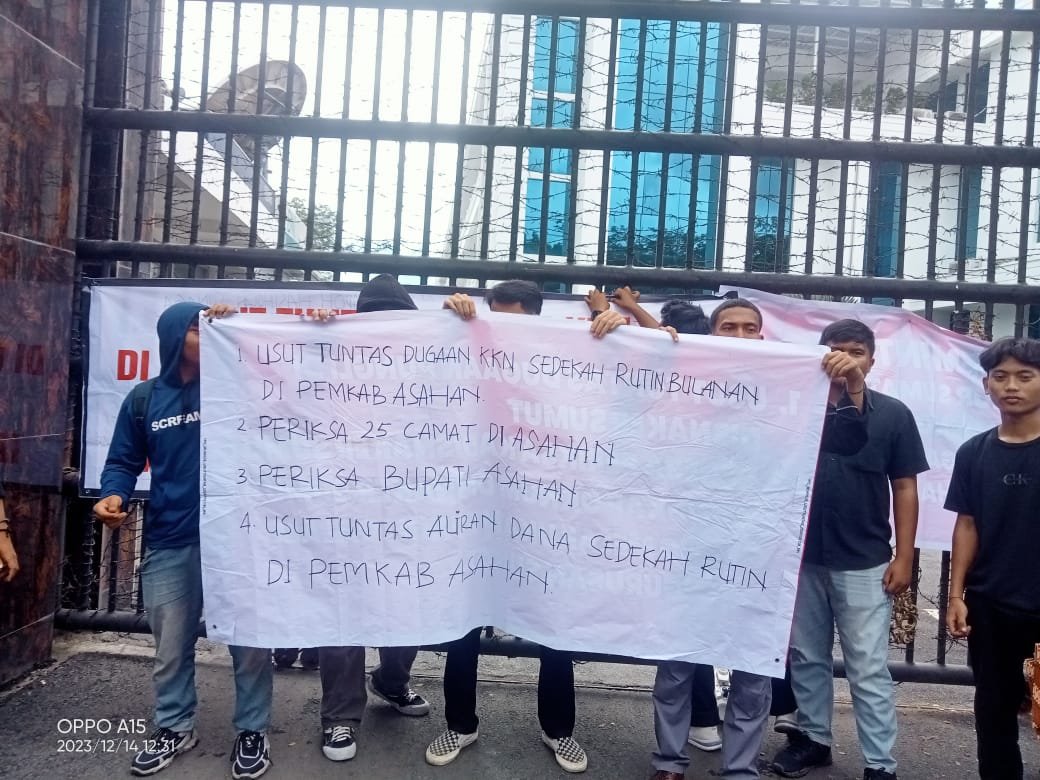 1. USUT TUNTAS DUGAAN KKN SEDEKAH RUTIN BULANAN
DI PEMKAB ASAHAN.
2. PERIKSA 25 CAMAT DI ASAHAN
3. PERIKSA BUPATI ASAHAN
4. USUT TUNTAS ALIRAN DANA SEDEKAH RUTIN
DI PEMKAB ASAHAN.
DI
SCREAM
CK
OPPO A15
2023/12/14 12:31